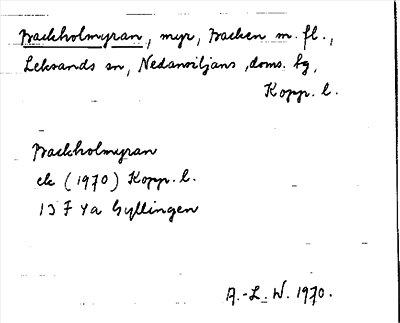 Backholmyran, myr, Backen m. fl.,
Leksands sn, Nedansiljans doms. hg,
Kopp. l.
Backholmyran
ek (1970) Kopp. l.
13 F 4a Gyllingen
A.-L. W. 1970.